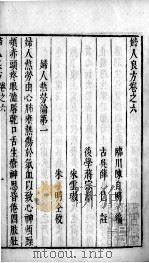 婦人良方卷之六
臨川陳自明 編
古吳薛己 註
後學蔣宗澹
朱雲翼
朱明 仝校
婦人熱勞論第一
婦人熱勞由心肺壅熱傷於氣血以致心神煩躁
頰赤頭疼眼澀唇乾口舌生瘡神思昏倦四肢壯